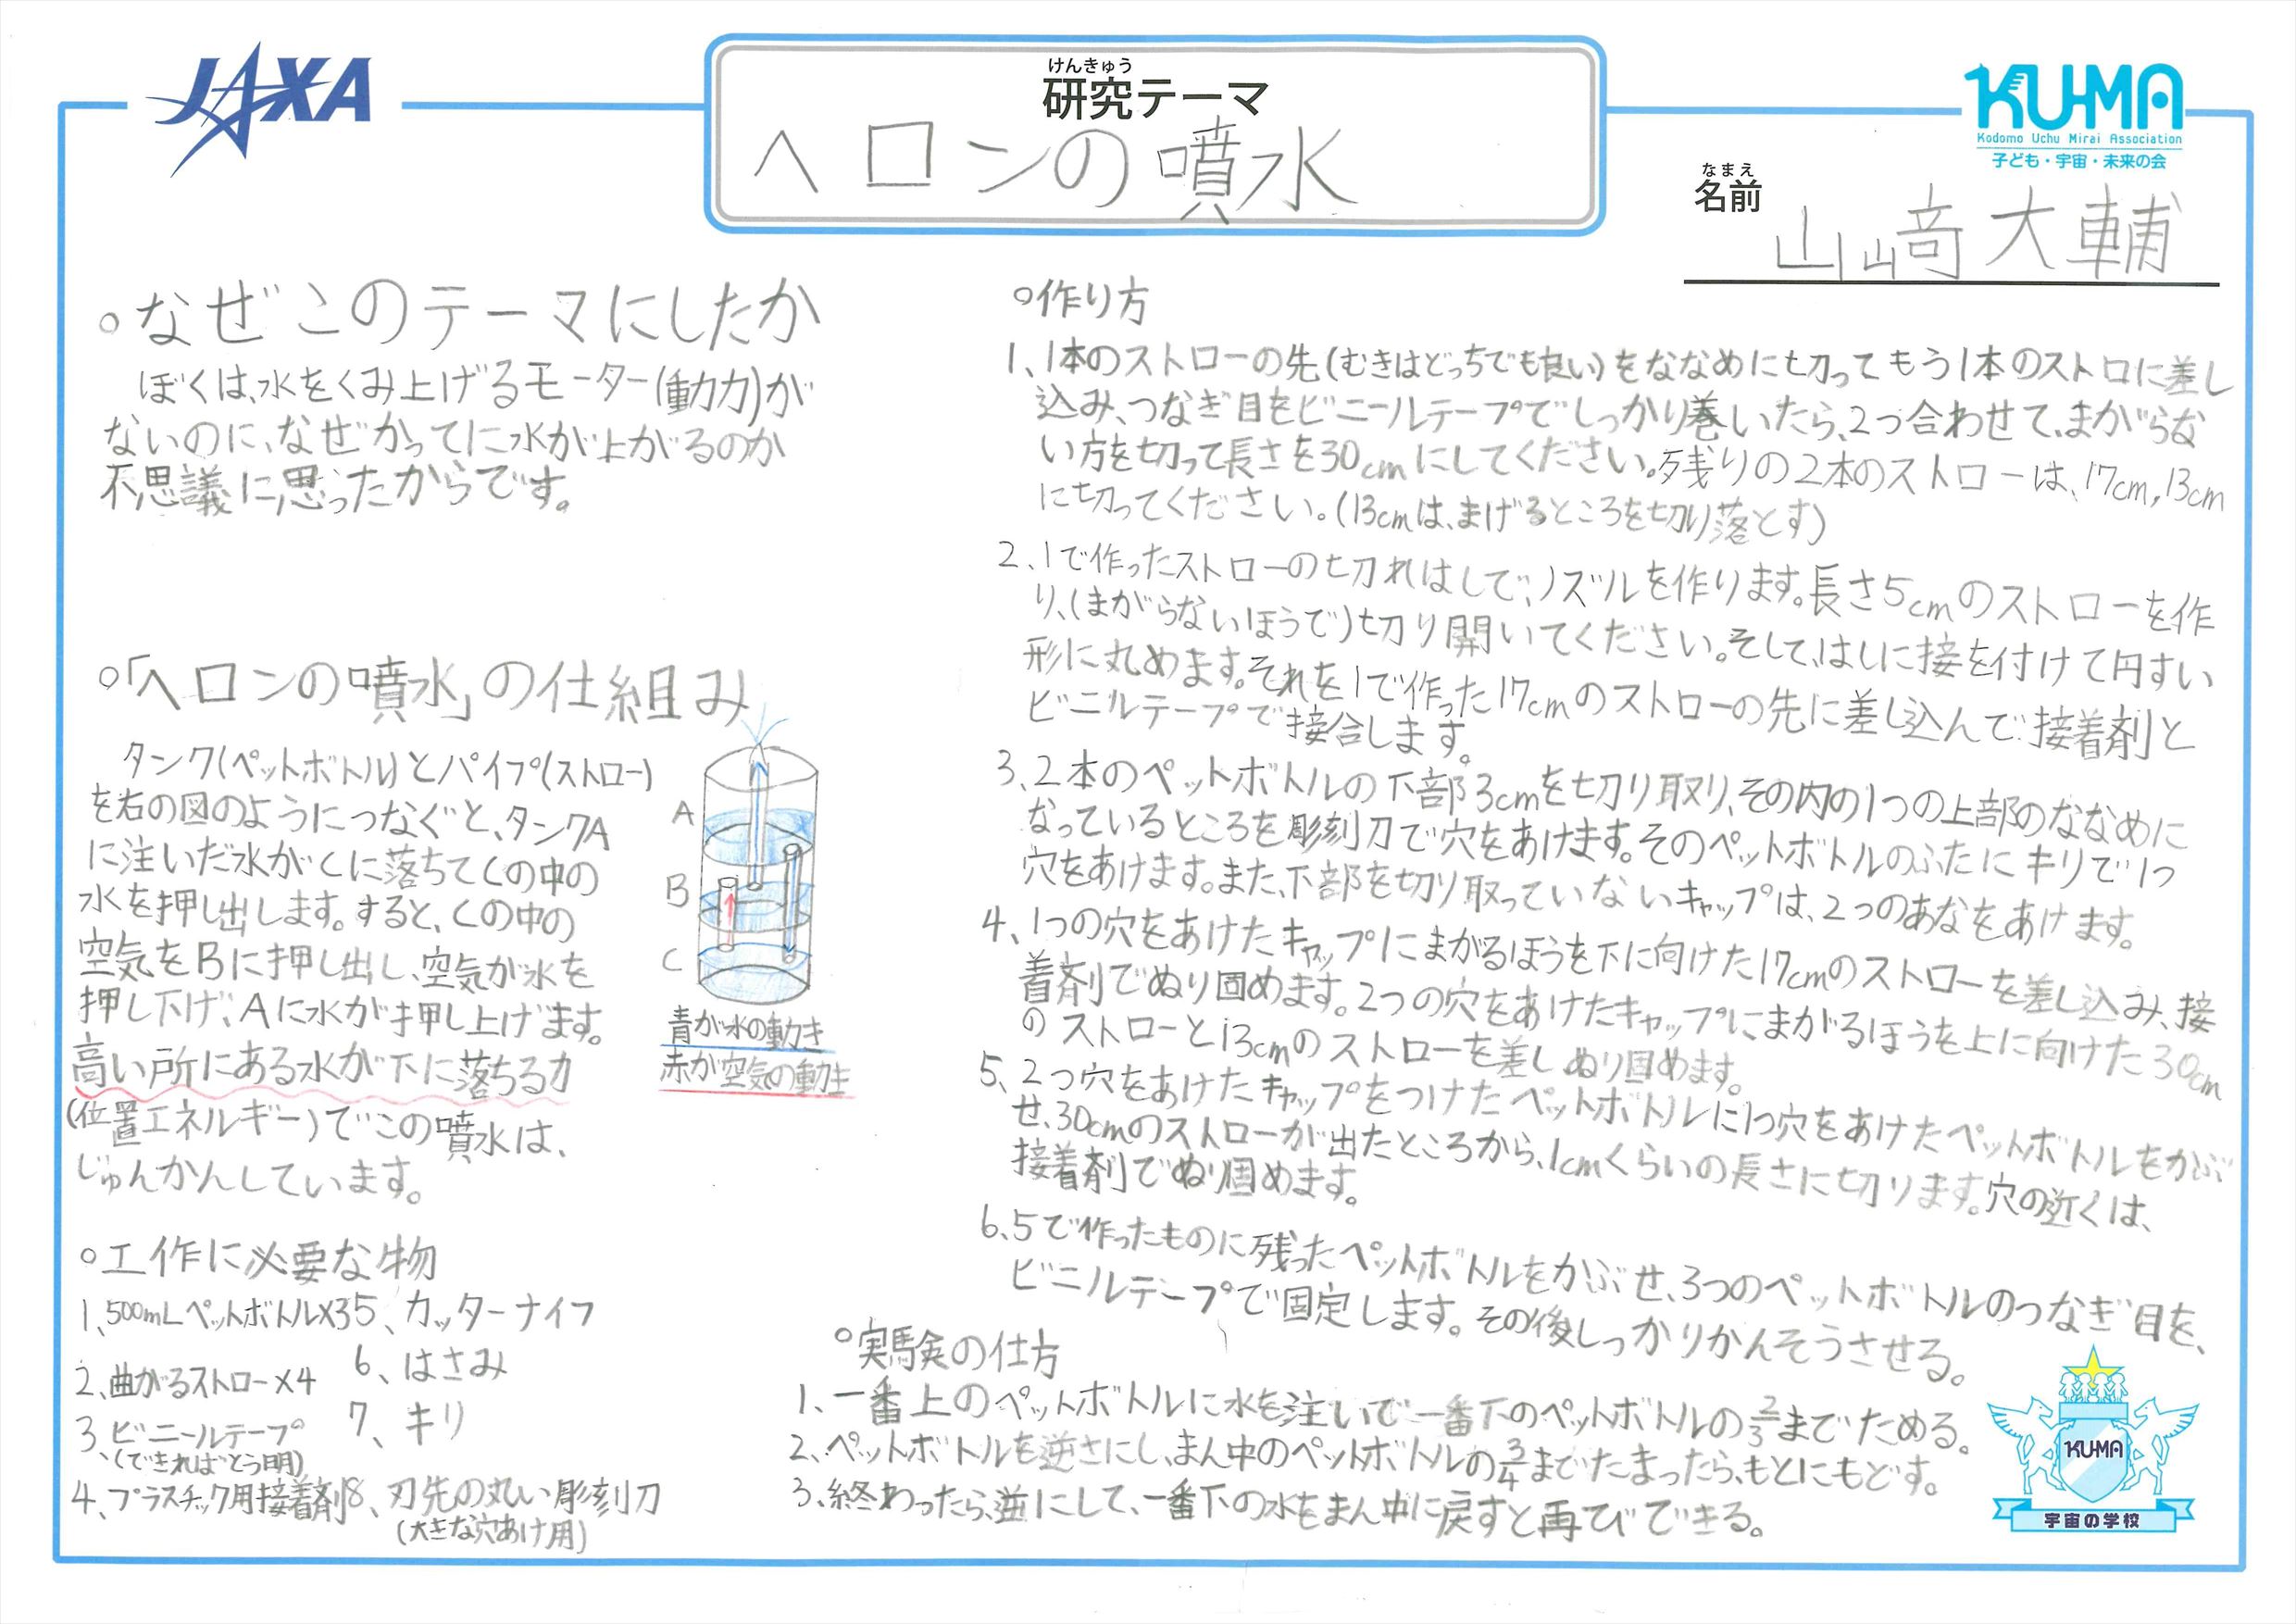 JAXA
けんきゅう
研究テーマ
ヘロンの噴水
KUMA
Kodomo Uchu Mirai Association
子ども・宇宙・未来の会
なまえ
名前
山﨑大輔
○なぜこのテーマにしたか
ぼくは、水をくみ上げるモーター(動力力)が
ないのに、なぜかってに水が上がるのか
不思議に思ったからです。
○「ヘロンの噴水」の仕組み
タンク(ペットボトル)とパイプ(ストロー)
を右の図のようにつなぐと、タンクA
に注いだ水がCに落ちてCの中の
水を押し出します。すると、Cの中の
空気をBに押し出し、空気が水を
押し下げ、Aに水が押し上げます。
高い所にある水が下に落ちる力
(位置エネルギー)でこの噴水は、
じゅんかんしています。
A
B
C
青が水の動き
赤が空気の動き
○工作に必要な物
1、500mLペットボトル×3
2、曲がるストロー×4
3、ビニールテープ
(できればとう明)
4、プラスチック用接着剤
5、カッターナイフ
6、はさみ
7、キリ
8、刃先の丸い彫刻刀
(大きな穴あけ用)
○作り方
1、1本のストローの先(むきはどっちでも良い)をななめに切ってもう1本のストロに差し
込み、つなぎ目をビニールテープでしっかり巻いたら、2つ合わせて、まがらな
い方を切って長さを30cmにしてください。残りの2本のストローは、17cm,13cm
に切ってください。(13cmは、まげるところを切り落とす)
2、1で作ったストローの切れはしで、ノズルを作ります。長さ5cmのストローを作
り、(まがらないほうで)切り開いてください。そして、はしに接を付けて円すい
形に丸めます。それを1で作った17cmのストローの先に差し込んで接着剤と
ビニルテープで接合します。
3、2本のペットボトルの下部3cmを切り取り、その内の1つの上部のななめに
なっているところを彫刻刀で穴をあけます。そのペットボトルのふたにキリで1つ
穴をあけます。また、下部を切り取っていないキャップは、2つのあなをあけます。
4、1つの穴をあけたキャップにまがるほうを下に向けた17cmのストローを差し込み、接
着剤でぬり固めます。2つの穴をあけたキャップにまがるほうを上に向けた30cm
のストローと13cmのストローを差しぬり固めます。
5、2つ穴をあけたキャップをつけたペットボトルに1つ穴をあけたペットボトルをかぶ
せ、30cmのストローが出たところから、1cmくらいの長さに切ります。穴の近くは、
接着剤でぬり固めます。
6、5で作ったものに残ったペットボトルをかぶせ、3つのペットボトルのつなぎ目を、
ビニルテープで固定します。その後しっかりかんそうさせる。
○実験の仕方
1、一番上のペットボトルに水を注いで一番下のペットボトルの2/3までためる。
2、ペットボトルを逆さにし、まん中のペットボトルの3/4までたまったら、もとにもどす。
3、終わったら、逆にして、一番下の水をまん中に戻すと再びできる。
KUMA
宇宙の学校